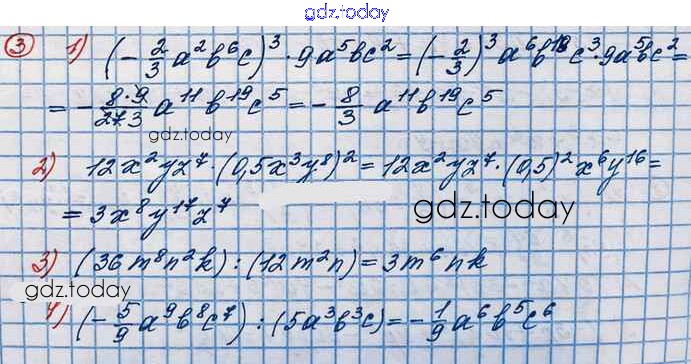 gdz.today
3 1) (-2/3 a²b⁶c)³ · 9a⁵bc² = (-2/3)³ a⁶b¹⁸c³ · 9a⁵bc² =
= -8·9/27·3 a¹¹b¹⁹c⁵ = -8/3 a¹¹b¹⁹c⁵
gdz.today
2) 12x²yz⁷ · (0,5x³y⁸)² = 12x²yz⁷ · (0,5)² x⁶y¹⁶ =
= 3x⁸y¹⁷z⁷
gdz.today
3) (36m⁸n²k) : (12m²n) = 3m⁶nk
gdz.today
4) (-5/9 a⁹b⁸c⁷) : (5a³b³c) = -1/9 a⁶b⁵c⁶